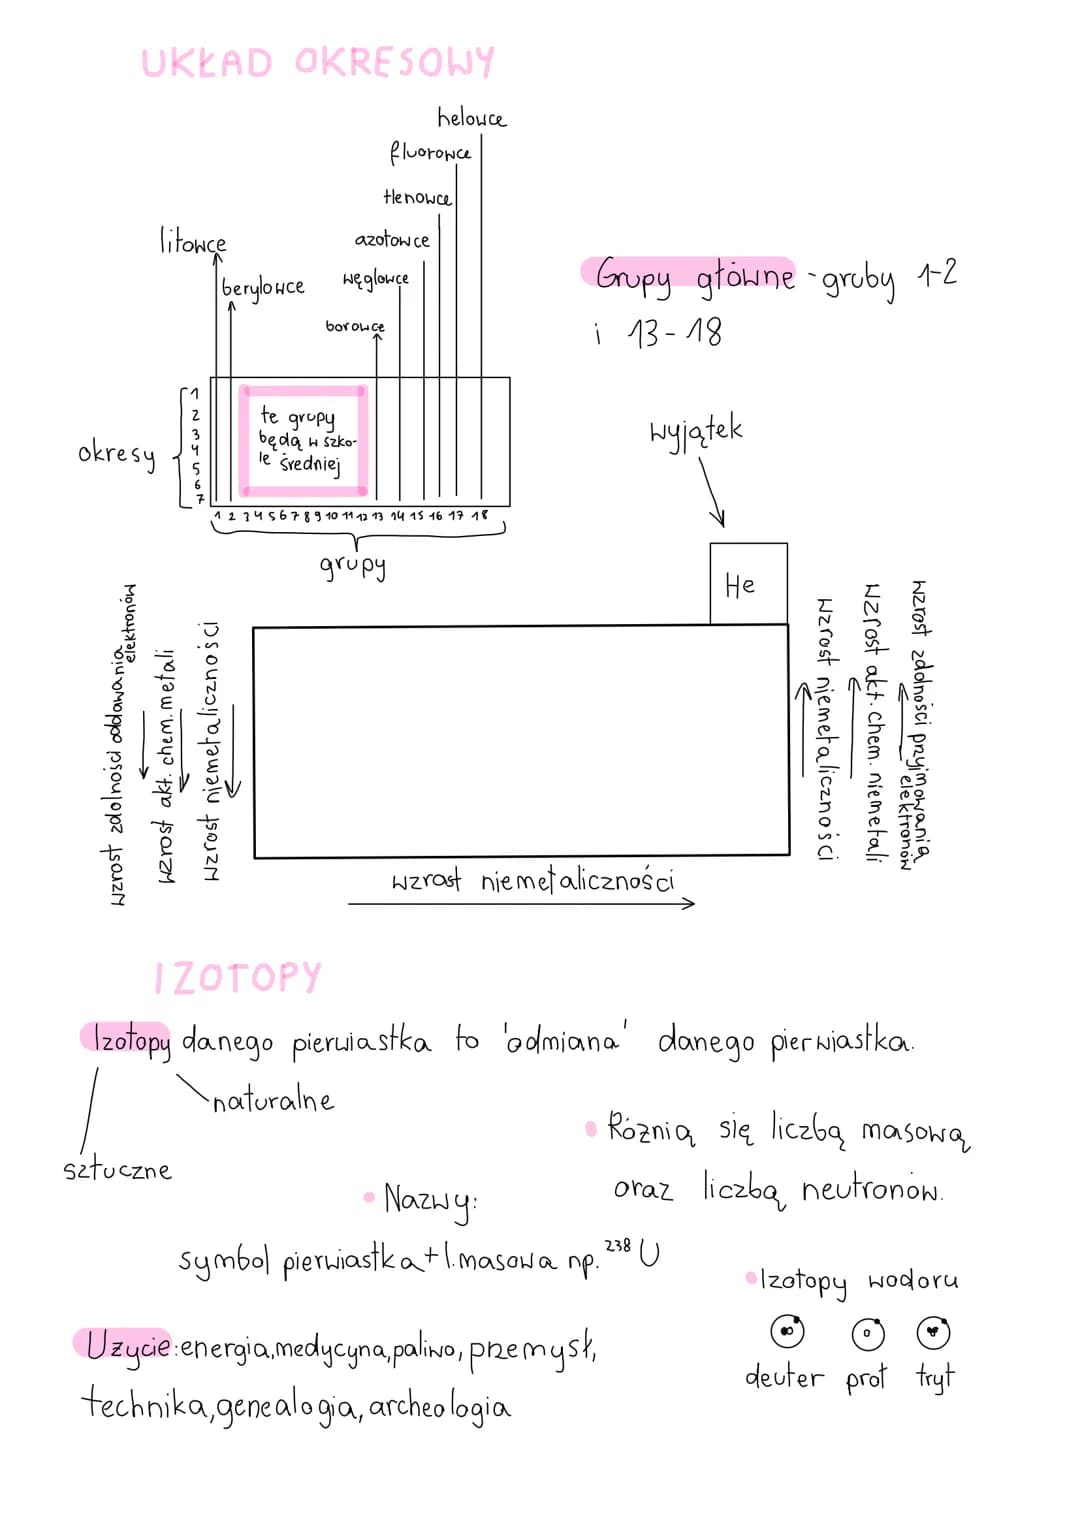 UKŁAD OKRESOWY
helowce
fluorowce
tlenowce
litowce
azotowce
berylowce
węglowce
borowce
Grupy główne - gruby 1-2
i 13-18
okresy
1
2
3
4
5
6
7
te grupy
będą w szko-
le średniej
1 2 3 4 5 6 7 8 9 10 11 12 13 14 15 16 17 18
grupy
wyjątek
He
wzrost zdolności oddawania
elektronów
wzrost akt. chem. metali
wzrost niemetaliczności
wzrost niemetaliczności
wzrost akt. chem. niemetali
wzrost zdolności przyjmowania
elektronów
wzrost niemetaliczności
IZOTOPY
Izotopy danego pierwiastka to 'odmiana' danego pierwiastka.
naturalne
sztuczne
• Różnią się liczbą masową
oraz liczbą neutronów.
• Nazwy:
symbol pierwiastka + l. masowa np. ²³⁸U
• Izotopy wodoru
deuter prot tryt
Użycie: energia, medycyna, paliwo, przemysł,
technika, genealogia, archeologia